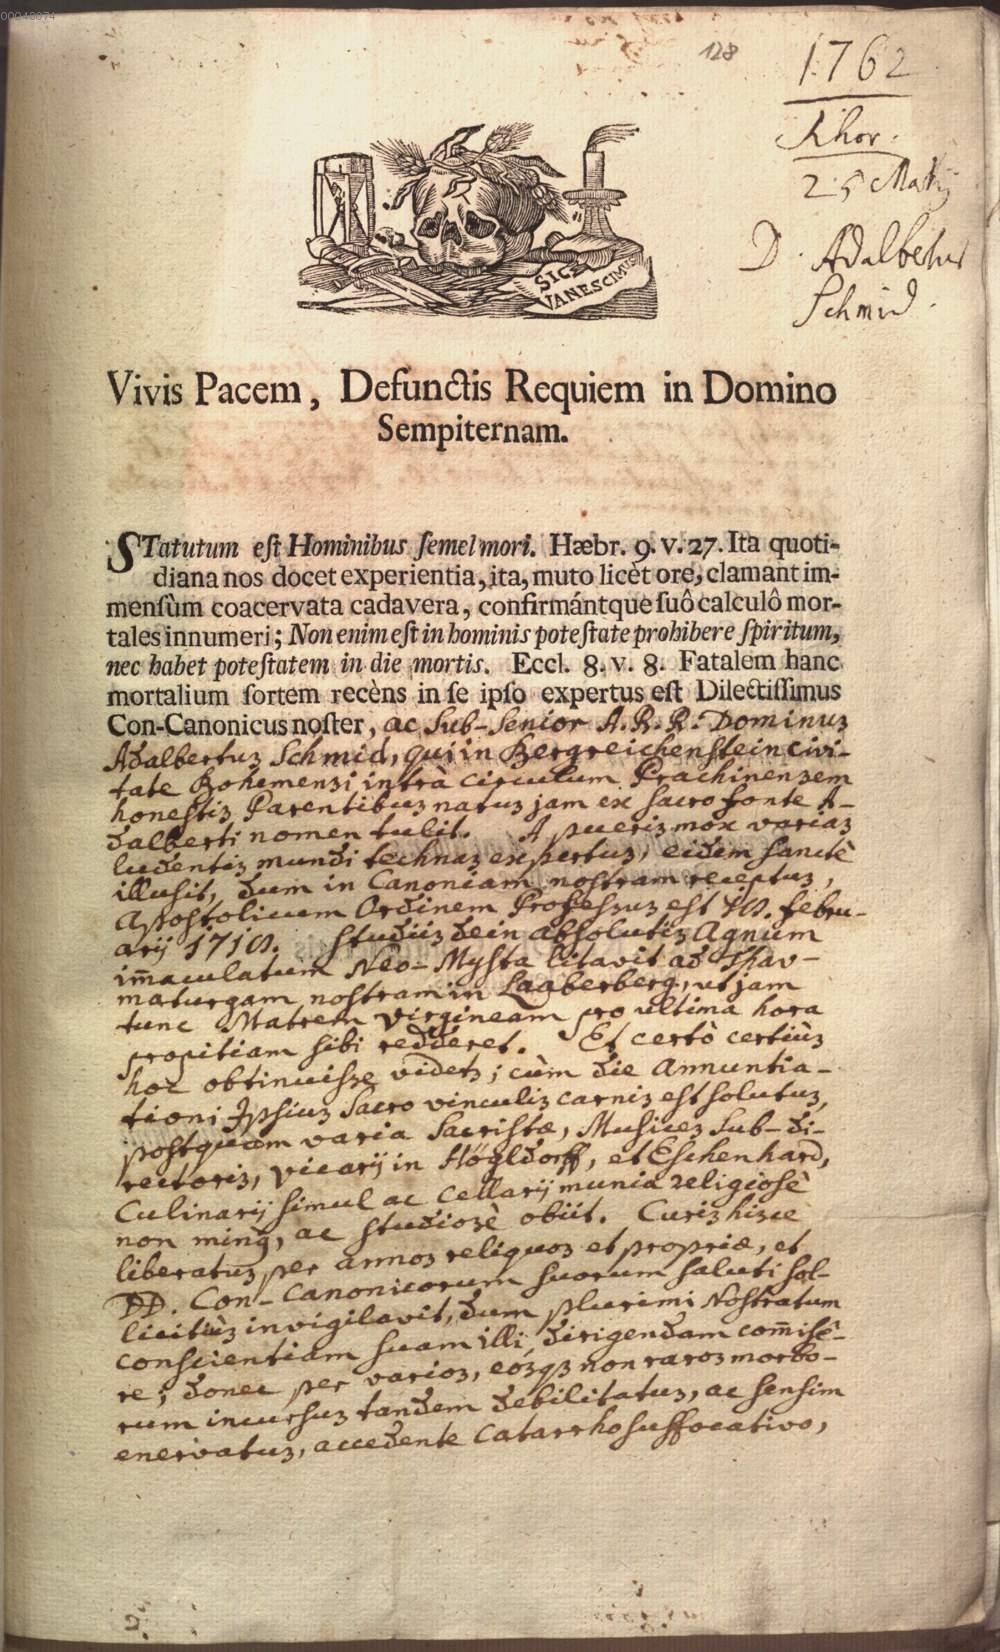 00048074
128
1762
Rhor.
25 Maij
D. Adalbertus
Schmid.
SIC
VANESCIMUS
Vivis Pacem, Defunctis Requiem in Domino
Sempiternam.
STatutum eſt Hominibus ſemel mori. Hæbr. 9. v. 27. Ita quoti-
diana nos docet experientia, ita, muto licèt ore, clamant im-
menſùm coacervata cadavera, confirmántque ſuô calculô mor-
tales innumeri; Non enim eſt in hominis poteſtate prohibere ſpiritum,
nec habet poteſtatem in die mortis. Eccl. 8. v. 8. Fatalem hanc
mortalium ſortem recèns in ſe ipſo expertus eſt Dilectiſſimus
Con-Canonicus noſter, ac Sub-Senior A. R. R. Dominus
Adalbertus Schmid, qui in Bergreichenstein civi-
tate Bohemensi intrà circulum Prachinensem
honestis Parentibus natus jam ex sacro fonte A-
dalberti nomen tulit. A pueris mox varias
ludentis mundi technas expertus, eidem sanctè
illusit, dum in Canoniam nostram receptus,
Apostolicum Ordinem Professus est 18. Febru-
arij 1718. Studiis dein absolutis Agnum
im̄aculatum Neo-Mysta litavit ad Thav-
maturgam nostram in Laaberberg, ut jam
tunc Matrem Virgineam pro ultima hora
propitiam sibi redderet. Et certò certiùs
hoc obtinuisse videtr; cùm die Annuntia-
tioni Ipsius Sacro vinculis carnis est solutus,
postquam varia Sacristæ, Musices Sub-di-
rectoris, Vicarij in Högldorff, et Eschenhard,
Culinarij simul ac Cellarij munia religiosè
non minq, ac studiosè obiit. Curis hisce
liberatus per annos reliquos et propriæ, et
DD. Con-Canonicorum suorum saluti sol-
licitiùs invigilavit, dum plurimi Nostratum
conscientiam suam illi dirigendam com̄isê-
re; donec per varios, eósq3 non raros morbo-
rum incursus tandem debilitatus, ac sensim
enervatus, accedente Catarrho suffocativo,